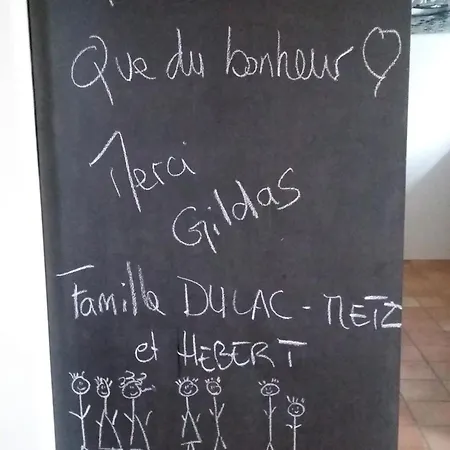 Que du bonheur
Merci
Gildas
Famille DULAC - METZ
et HEBERT